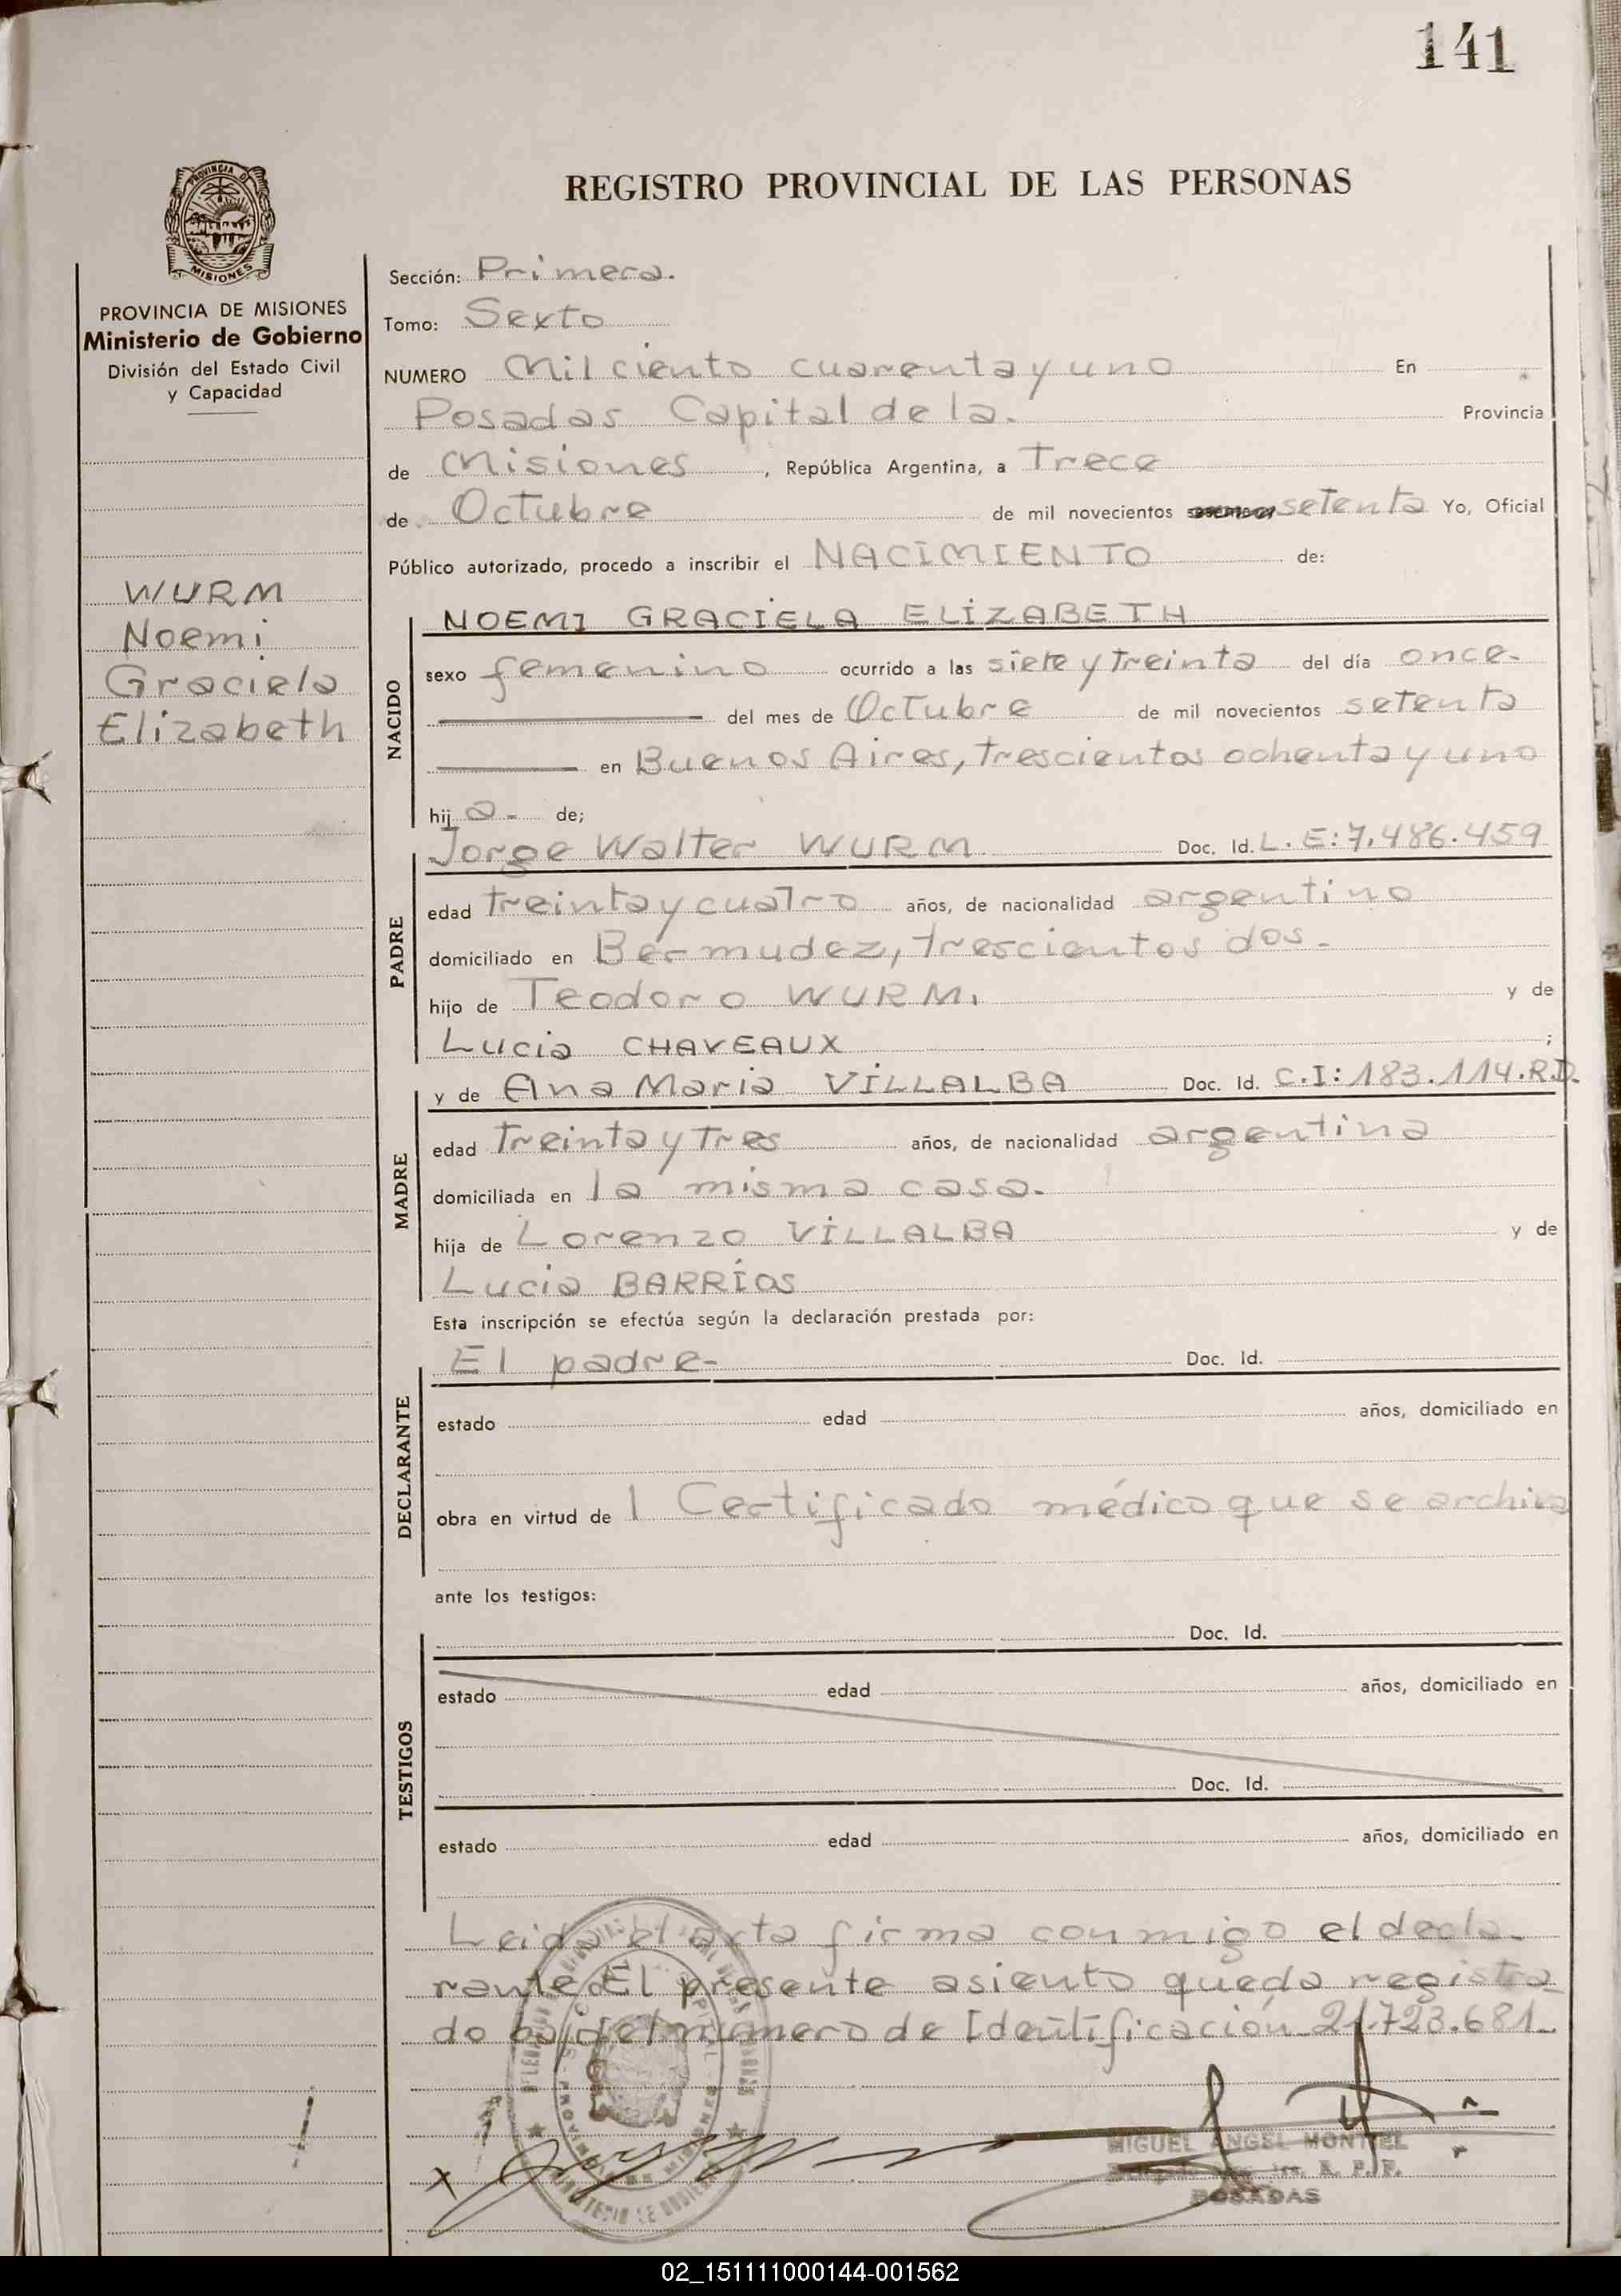 141
REGISTRO PROVINCIAL DE LAS PERSONAS
PROVINCIA DE
MISIONES
PROVINCIA DE MISIONES
Ministerio de Gobierno
División del Estado Civil
y Capacidad
WURM
Noemi
Graciela
Elizabeth
Sección: Primera.
Tomo: Sexto
NUMERO Mil ciento cuarenta y uno En
Posadas Capital de la. Provincia
de Misiones, República Argentina, a Trece
de Octubre de mil novecientos setenta Yo, Oficial
Público autorizado, procedo a inscribir el NACIMIENTO de:
NACIDO
NOEMI GRACIELA ELIZABETH
sexo femenino ocurrido a las siete y treinta del día once-
del mes de Octubre de mil novecientos setenta
en Buenos Aires, trescientos ochenta y uno
hij a- de;
PADRE
Jorge Walter WURM Doc. Id. L. E: 7.486.459
edad treinta y cuatro años, de nacionalidad argentino
domiciliado en Bermudez, trescientos dos-
hijo de Teodoro WURM. y de
Lucia CHAVEAUX ;
MADRE
y de Ana Maria VILLALBA Doc. Id. C.I: 183.114.R.D.
edad Treinta y Tres años, de nacionalidad argentina
domiciliada en la misma casa.
hija de Lorenzo VILLALBA y de
Lucia BARRIOS
Esta inscripción se efectúa según la declaración prestada por:
DECLARANTE
El padre- Doc. Id.
estado edad años, domiciliado en
obra en virtud de 1 Certificado médico que se archiva
ante los testigos:
TESTIGOS
Doc. Id.
estado edad años, domiciliado en
Doc. Id.
estado edad años, domiciliado en
Leida el acta firma conmigo el decla-
rante. El presente asiento queda registra-
do bajo el número de Identificación 21.723.681.
MIGUEL ANGEL MONTIEL
R. P. P.
POSADAS
02_151111000144-001562